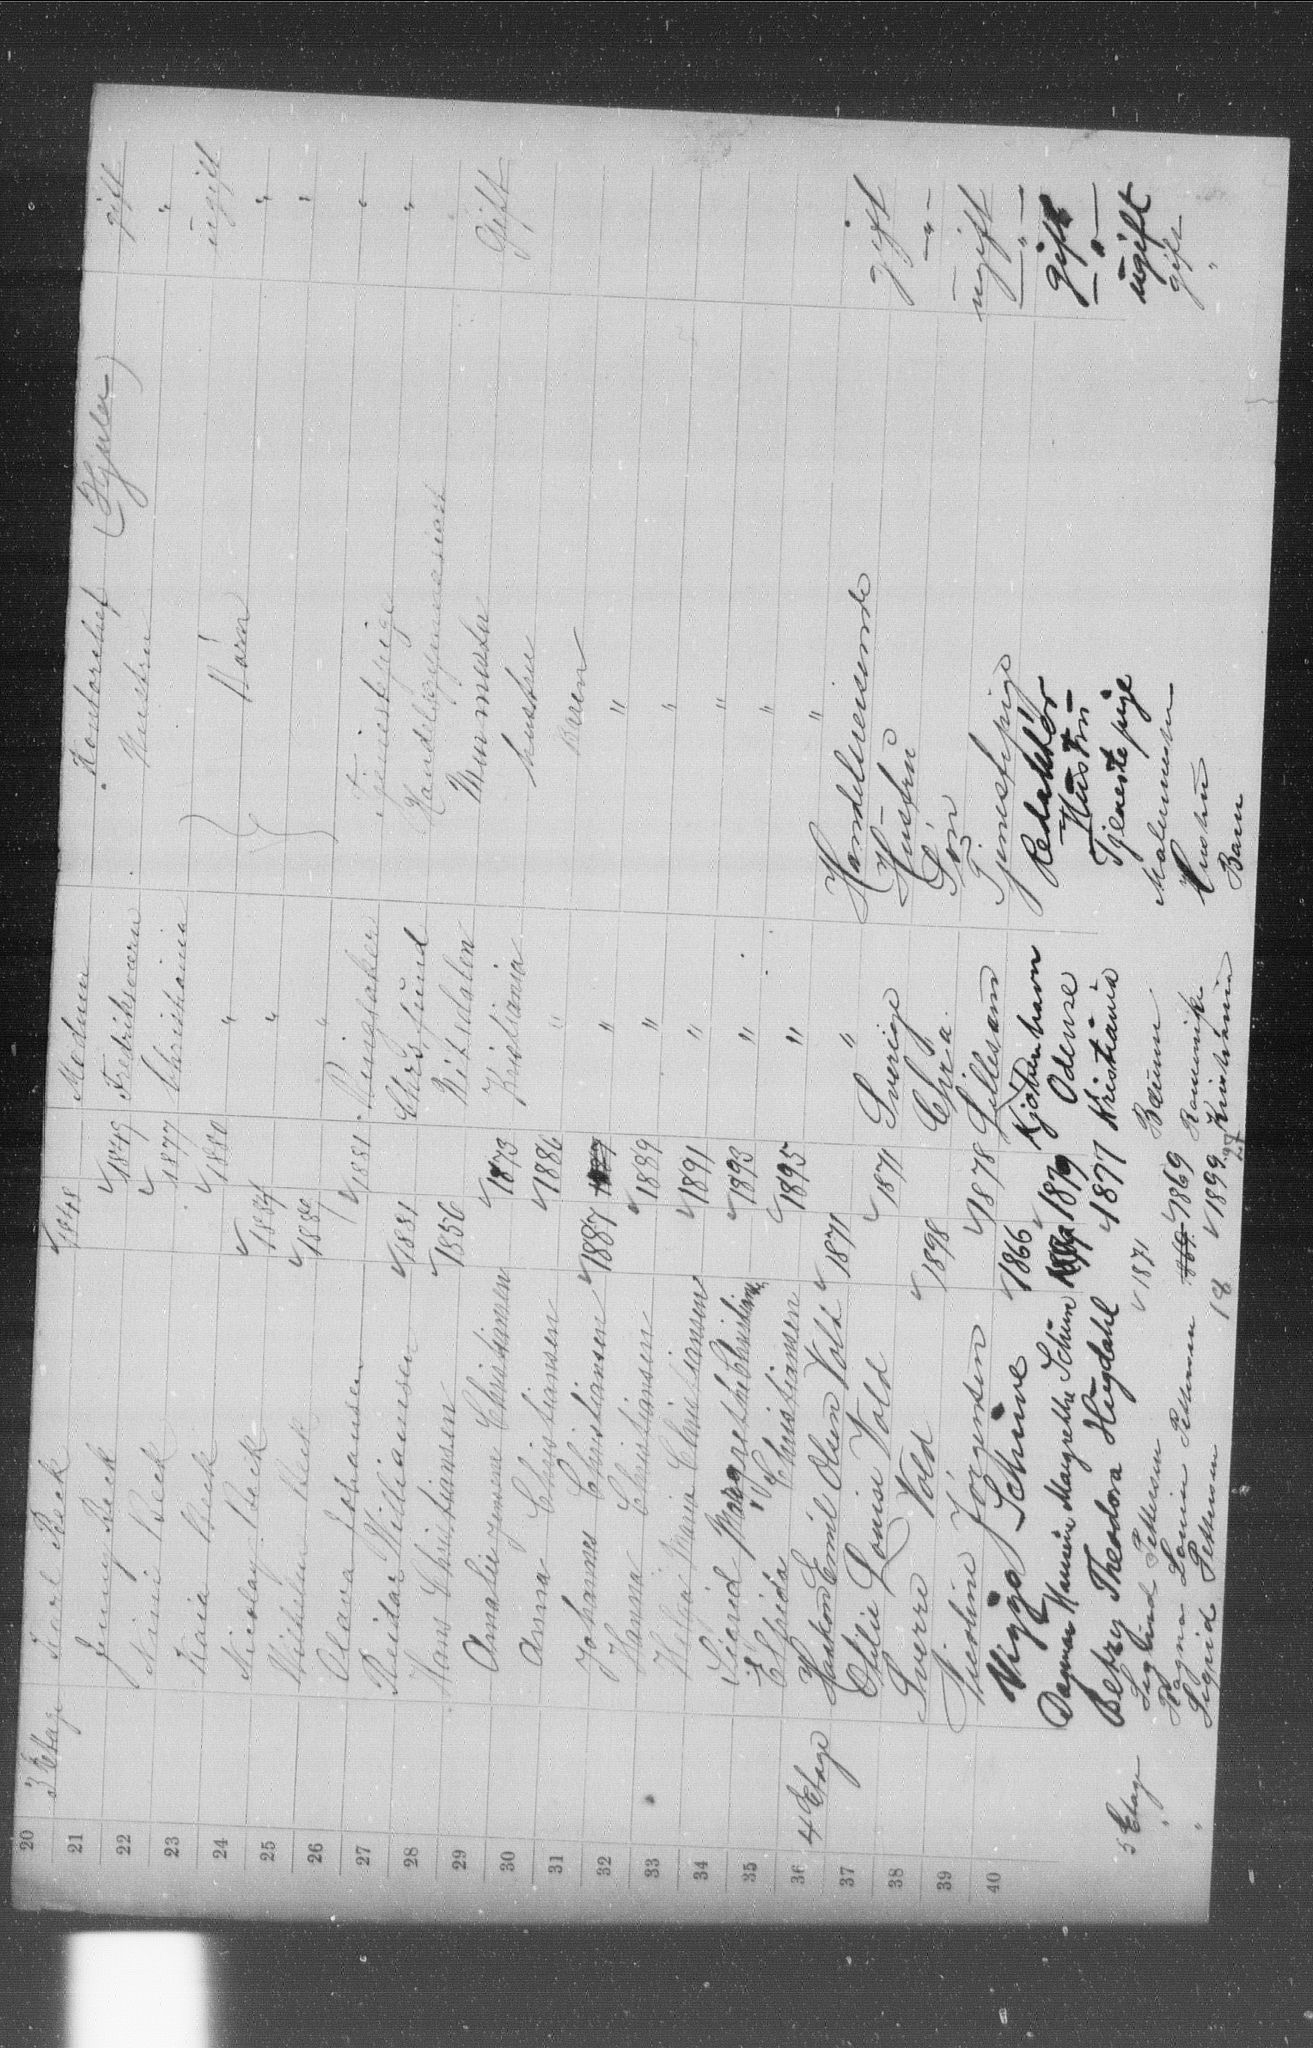 20 3 Etage Karl Beck 1848 Modum Kontorchef (Hjuler) gift
21 Jenny Beck 1849 Fredriksværn Hustru "
22 Nini Beck 1877 Christiania Børn ugift
23 Kaia Beck 1880 " "
24 Nicolay Beck 1884 " "
25 Wilhelm Beck 1887 " "
26 Clara Johansen 1881 Ringsaker Tjenestpige "
27 Reidar Williamsen 1881 Chrs.sund Handelsgymnasiast
28 Hans Christiansen 1856 Murmester Gift
29 Amalie Christiansen 1873 Kristiania hustru
30 Anna Christiansen 1886 " Barn
31 Johannes Christiansen 1887 " "
32 Hanna Christiansen 1889 " "
33 Helga Marie Christiansen 1891 " "
34 Sigrid Margrethe Christiansen 1893 " "
35 Elfrida Christiansen 1895 " "
36 4 Etage Haakon Emil Olsen Vold 1871 " Handelsreisende gift
37 Otilie Louise Vold 1871 Sverige Hustru — " —
38 Sverre Vold 1898 Chr.a. Sön ugift
39 Nicoline Jörgensen 1878 Lillesand Tjenestepige — " —
40 Viggo Schiwe 1866 Kjöbenhavn Redaktör gift
Dagmar Margrethe Schiwe 1879 Odense Hustru — " —
Betzy Theodora Haugdahl 1877 Kristiania Tjenestepige ugift
5 Etage Pettersen 1871 Bærum Malermester gift
" Ragna Pettersen 1869 Hustru "
" Sigrid Pettersen 18 27 1899 Kristiania Barn